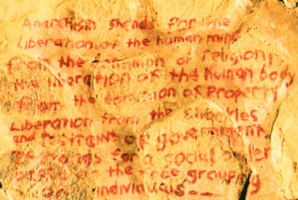 Anarchism stands for the
liberation of the human mind
from the dominion of religion;
the liberation of the human body
from the dominion of Property
Liberation from the shackles
and restraint of government
stands for a social order
based on the free grouping
of individuals